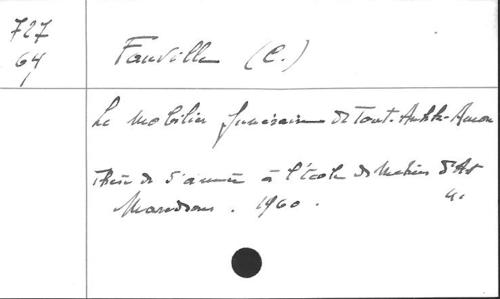 727
64
Fauville (C.)
Le mobilier funéraire de Tout-Ankh-Amon
Thèse de 5e année à l'École de Métiers d'Art
Maredsous. 1960. 4.